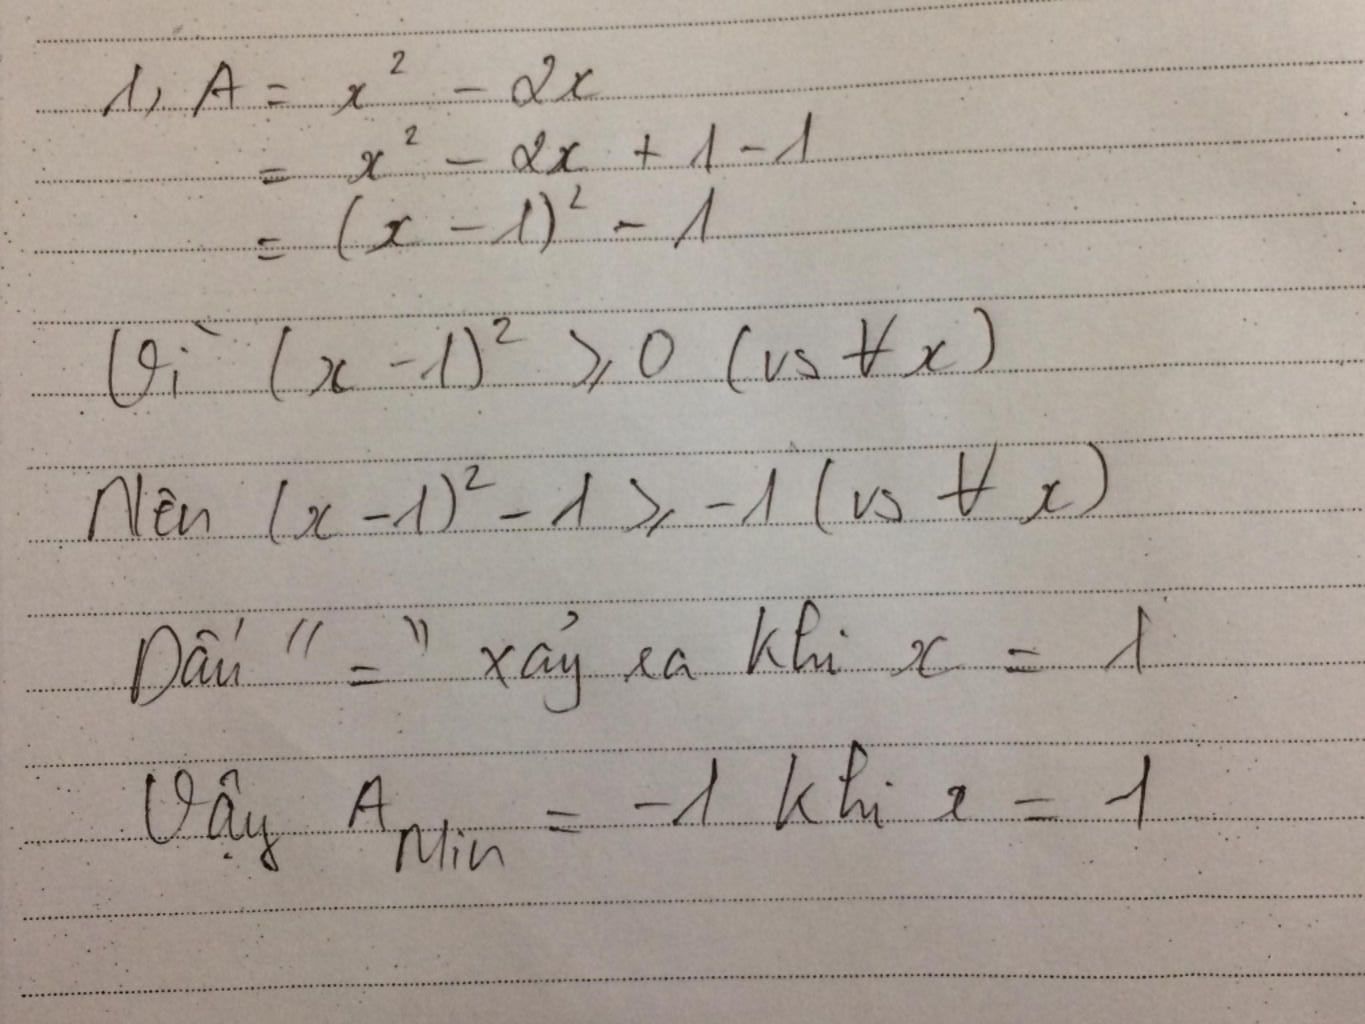 1, A = x² - 2x
= x² - 2x + 1 - 1
= (x - 1)² - 1
Vì (x - 1)² ≥ 0 (vs ∀ x)
Nên (x - 1)² - 1 ≥ -1 (vs ∀ x)
Dấu "=" xảy ra khi x = 1
Vậy A Min = -1 khi x = 1